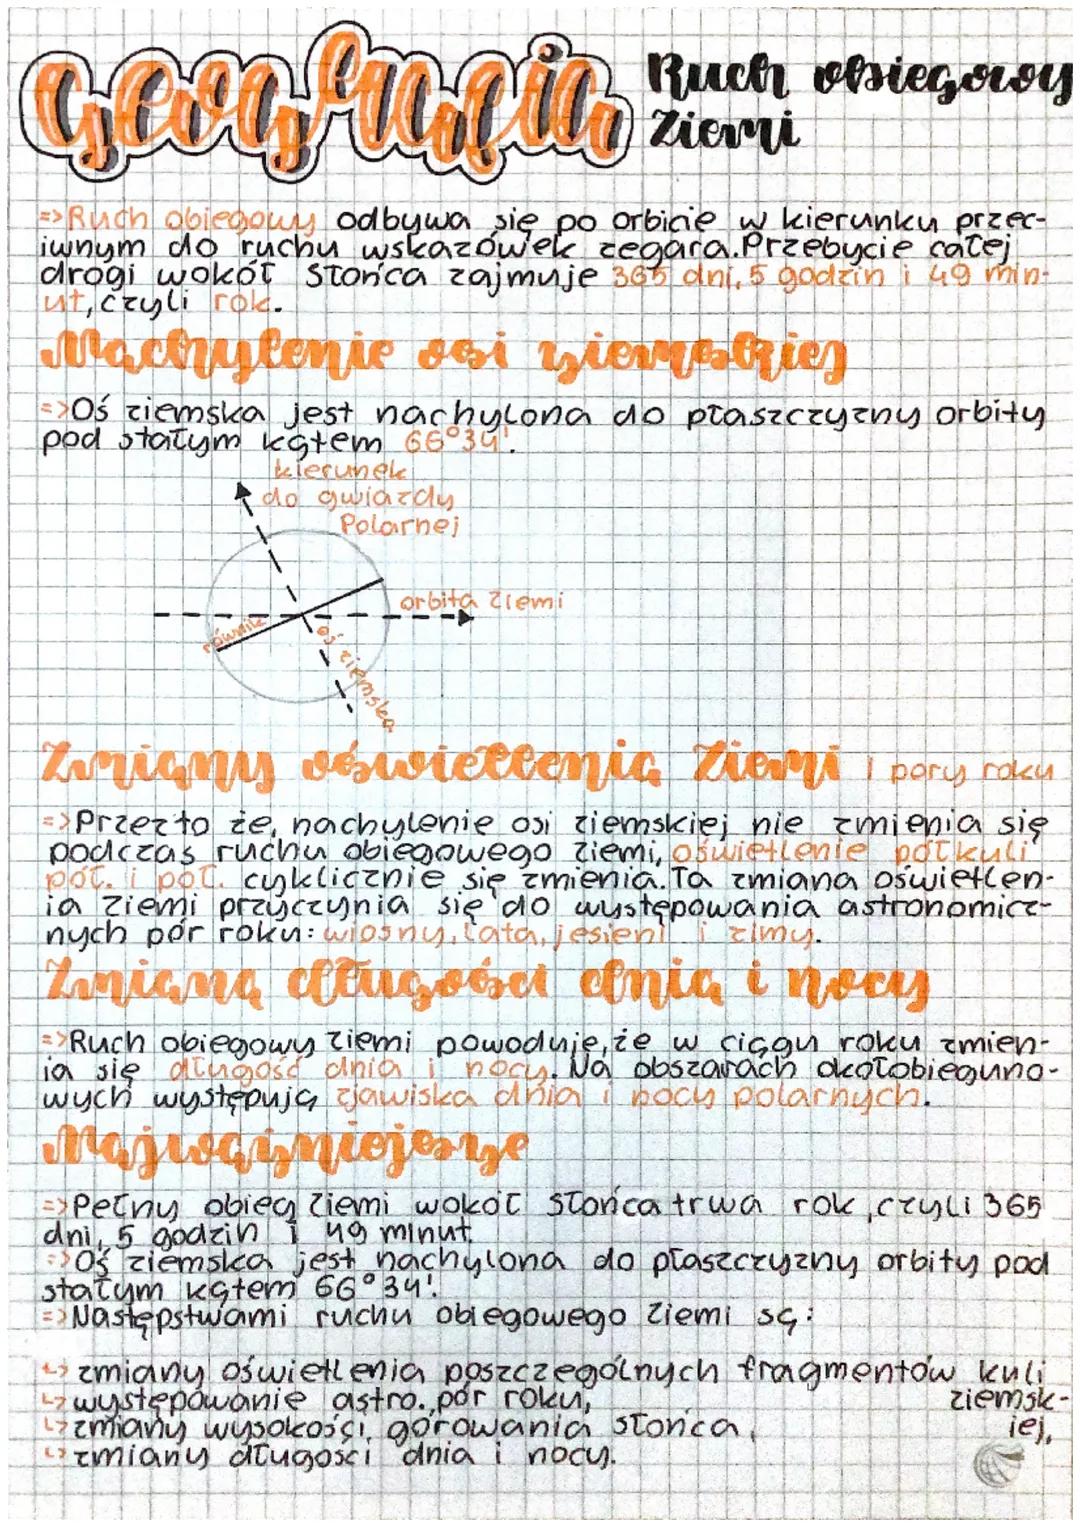 Geografia
Ruch obiegowy
Ziemi
=> Ruch obiegowy odbywa się po orbicie w kierunku przec-
iwnym do ruchu wskazówek zegara. Przebycie całej
drogi wokół Słońca zajmuje 365 dni, 5 godzin i 49 min-
ut, czyli rok.
Nachylenie osi ziemskiej
=> Oś ziemska jest nachylona do płaszczyzny orbity
pod stałym kątem 66°34'.
kierunek
do gwiazdy
Polarnej
orbita Ziemi
równik
oś ziemska
Zmiany oświetlenia Ziemi i pory roku
=> Przez to że, nachylenie osi ziemskiej nie zmienia się
podczas ruchu obiegowego Ziemi, oświetlenie półkuli
półn. i poł. cyklicznie się zmienia. Ta zmiana oświetlen-
ia Ziemi przyczynia się do występowania astronomicz-
nych pór roku: wiosny, lata, jesieni i zimy.
Zmiana długości dnia i nocy
=> Ruch obiegowy Ziemi powoduje, że w ciągu roku zmien-
ia się długość dnia i nocy. Na obszarach okołobieguno-
wych występują zjawiska dnia i nocy polarnych.
Najważniejsze
=> Pełny obieg Ziemi wokół Słońca trwa rok, czyli 365
dni, 5 godzin i 49 minut.
=> Oś ziemska jest nachylona do płaszczyzny orbity pod
stałym kątem 66°34'.
=> Następstwami ruchu obiegowego Ziemi są:
↳ zmiany oświetlenia poszczególnych fragmentów kuli
ziemsk-
iej,
↳ występowanie astro. pór roku,
↳ zmiany wysokości górowania słońca,
↳ zmiany długości dnia i nocy.